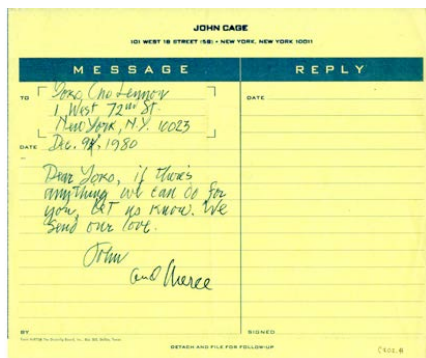 JOHN CAGE
101 WEST 18 STREET (5B) • NEW YORK, NEW YORK 10011
MESSAGE
REPLY
TO
Yoko Ono Lennon
1 West 72nd St.
New York, N.Y. 10023
DATE
DATE Dec. 9, 1980
Dear Yoko, if there's
anything we can do for
you, let us know. We
send our love.
John
and Merce
BY
SIGNED
DETACH AND FILE FOR FOLLOW-UP